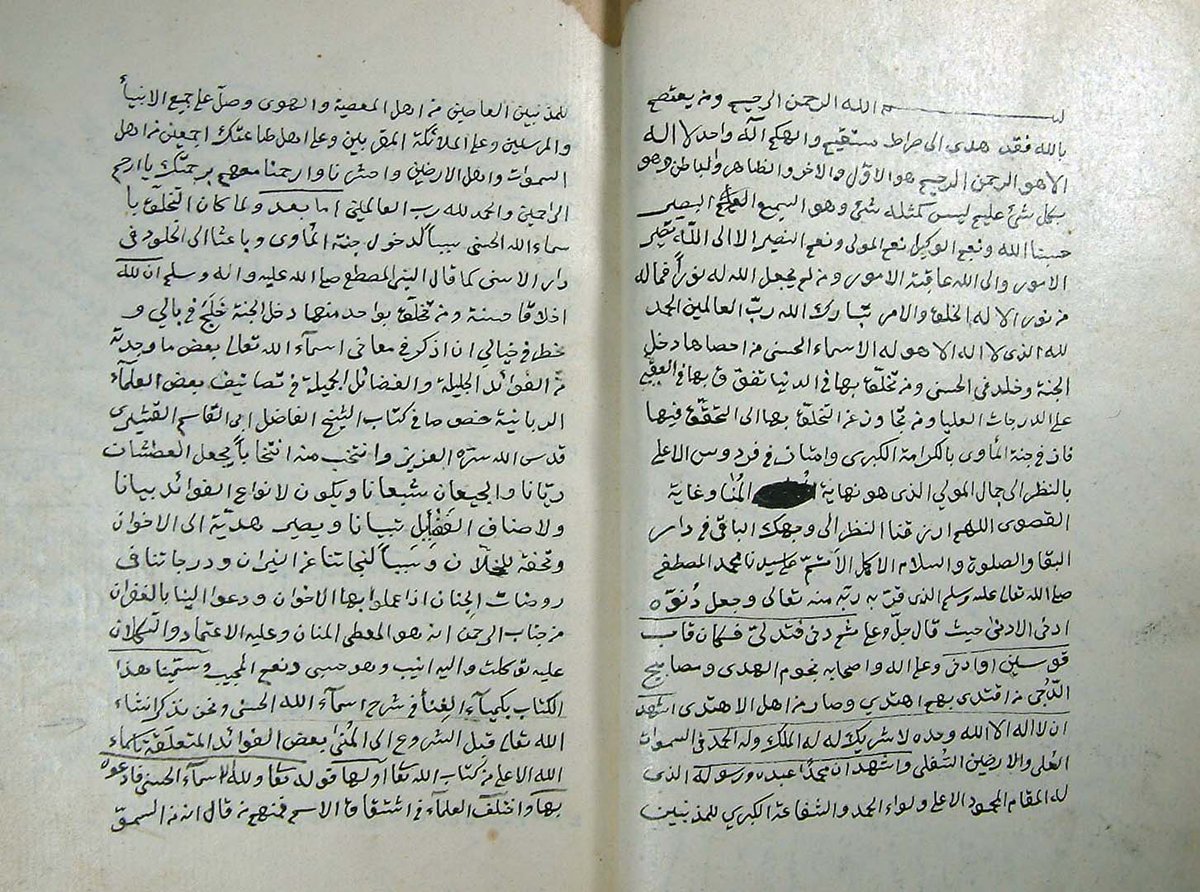 بسم الله الرحمن الرحيم ومن يعتصم
بالله فقد هدى الى صراط مستقيم والهكم اله واحد لا اله
الا هو الرحمن الرحيم هو الاوّل والاخر والظاهر والباطن وهو
بكل شئ عليم ليس كمثله شئ وهو السميع العليم البصير
حسبنا الله ونعم الوكيل نعم المولى ونعم النصير الا الى اللّه تصير
الامور والى الله عاقبة الامور ومن لم يجعل الله له نوراً فما له
من نور الا له الخلق والامر تبارك الله ربّ العالمين الحمد
لله الذى لا اله الا هو له الاسماء الحسنى من احصاها دخل
الجنة وخلد فى الحسنى ومن تخلّق بها فى الدنيا تفوّق بها فى العقبى
على الدرجات العليا ومن تجاوز عن التخلق بها الى التحقّق فيها
فاز فى جنة المأوى بالكرامة الكبرى وامتاز فى فردوس الاعلى
بالنظر الى جمال المولى الذى هو نهاية المُنا وغاية
القصوى اللهم ارزقنا النظر الى وجهك الباقى فى دار
البقا والصلوة والسلام الاكمل الأتمّ على سيدنا محمد المصطفى
صلى الله تعالى عليه وسلم الذى قرّبه ربّه منه تعالى وجعل دُنوّه
ادنى الادنى حيث قال جلّ وعلى ثم دنى فتدلىّ فكان قاب
قوسين او ادنى وعلى اله واصحابه نجوم الهدى ومصابيح
الدّجى من اقتدى بهم اهتدى وصار من اهل الاهتدى اشهد
ان لا اله الا الله وحده لا شريك له له الملك وله الحمد فى السموات
العُلى والارضين السُفلى واشهد ان محمّدا عبده ورسوله الذى
له المقام المحمود الاعلى ولواء الحمد والشفاعة الكبرى للمذنبين
للمذنبين العاصين من اهل المعصية والهوى وصلّ على جميع الانبيأ
والمرسلين وعلى الملائكة المقربين وعلى اهل طاعتك اجمعين من اهل
السموات واهل الارضين واحشرنا وارحمنا معهم برحمتك يا ارحم
الراحمين والحمد لله رب العالمين اما بعد ولما كان التخلّق با
سماء الله الحسنى سببا لدخول جنة المأوى وباعثا الى الخلود فى
دار الاسنى كما قال النبى المصطفى صلى الله عليه واله وسلم ان لله
اخلاقا حسنة ومن تخلّق بواحد منها دخل الجنة خَلَجَ فى بالي و
خطر في خيالي ان اذكر فى معانى اسمآء الله تعالى بعض ما وجدته
من الفوائد الجليلة والفضائل الجميلة فى تصانيف بعض العلمآء
الربانية خصوصا فى كتاب الشيخ الفاضل ابى القاسم القشيرى
قدس الله سره العزيز وانتخب منه انتخاباً يجعل العطشات
ريّانا والجيعان شبعانا ويكون لانواع الفوائد بيانا
ولاصناف تبيانا ويصير هديّة الى الاخوان
وتحفة للخلّان وسبباً لنجاتنا عن النيران ودرجاتنا فى
روضات الجنان اذا عملوا بها الاخوان ودعوا الينا بالغفران
من جناب الرحمن انه هو المعطى المنان وعليه الاعتماد والتكلان
عليه توكلت واليه انيب وهو حسبى ونعم المجيب وسمّينا هذا
الكتاب بكيميآء الغِنأ فى شرح اسمآء الله الحسنى ونحن نذكر انشاء
الله تعالى قبل الشروع الى المُنى بعض الفوائد المتعلقة باسماء
الله الاعلى من كتاب الله تعا اولها قوله تعا ولله الاسمآء الحسنى فادعوه
بها واختلف العلمآء فى اشتقاق الاسم فمنهم من قال انه من السموّ